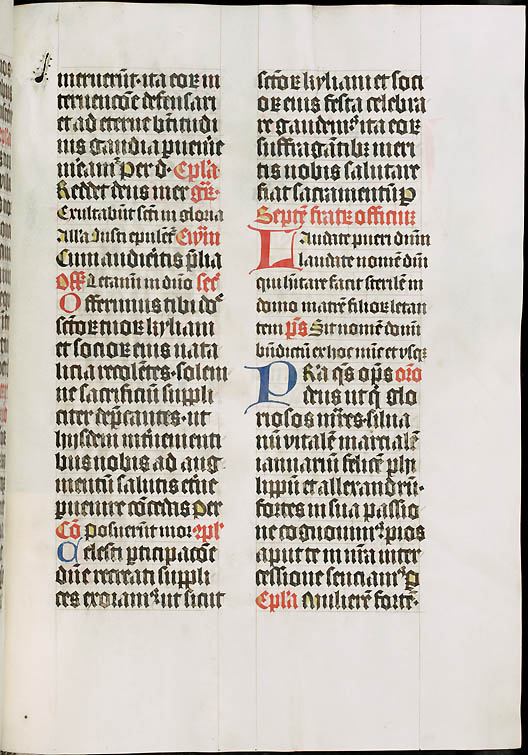 meruerūt · ita eoꝝ in
teruencōe defensari
et ad eterne bn̄titudi
nis gaudia ꝑuenīe
meam᷑ Per d · Epl̄a
Reddet deus mer gr̄ ·
Exultabūt sct̄i in gloria
All̄a Iusti epulēt᷑ Ewn̄
Cum audieitis p̄lia
Off̄ Letamini in dn̄o sec̄
Offerimus tibi dn̄e
sctōꝝ tuoꝝ kyliani
et socioꝝ eius nata
licia recolētes · solem
ne sacrificiū suppli
citer dep̄cantes · ut
huisdem interuenienti
bus nobis ad aug
mentū salutis et̄ne
ꝑuenire cōcedis Per
Cō Posuerūt mor · ⁊pl̄
Celesti ꝑticipacōe
dn̄e recreati suppli
ces exoram᷑ ut sicut
sctōꝝ kyliani et soci
oꝝ eius festa celebra
re gaudem᷑ ita eoꝝ
suffragantibꝫ meri
tis nobis salutare
fiat sacramentū P
Septē fratꝝ officiū
Laudate pueri dn̄m
laudate nomē dn̄i
qui hītare facit sterilē in
domo matrē filioꝝ letan
tem p̄s Sit nomē domī
bn̄dictū ex hoc nūc et vsqꝫ
PRa q̄s op̄s oꝛo
deus ut q̄ glo
riosos mr̄es · silua
nū vitalē marcialē
ianuariū felicē phi
lippū et allexandrū ·
fortes in sua passio
ne cognouim᷑ pios
aput te in nr̄a inter
cessione senciam᷑ P
Epl̄a Mulierē fortē ·